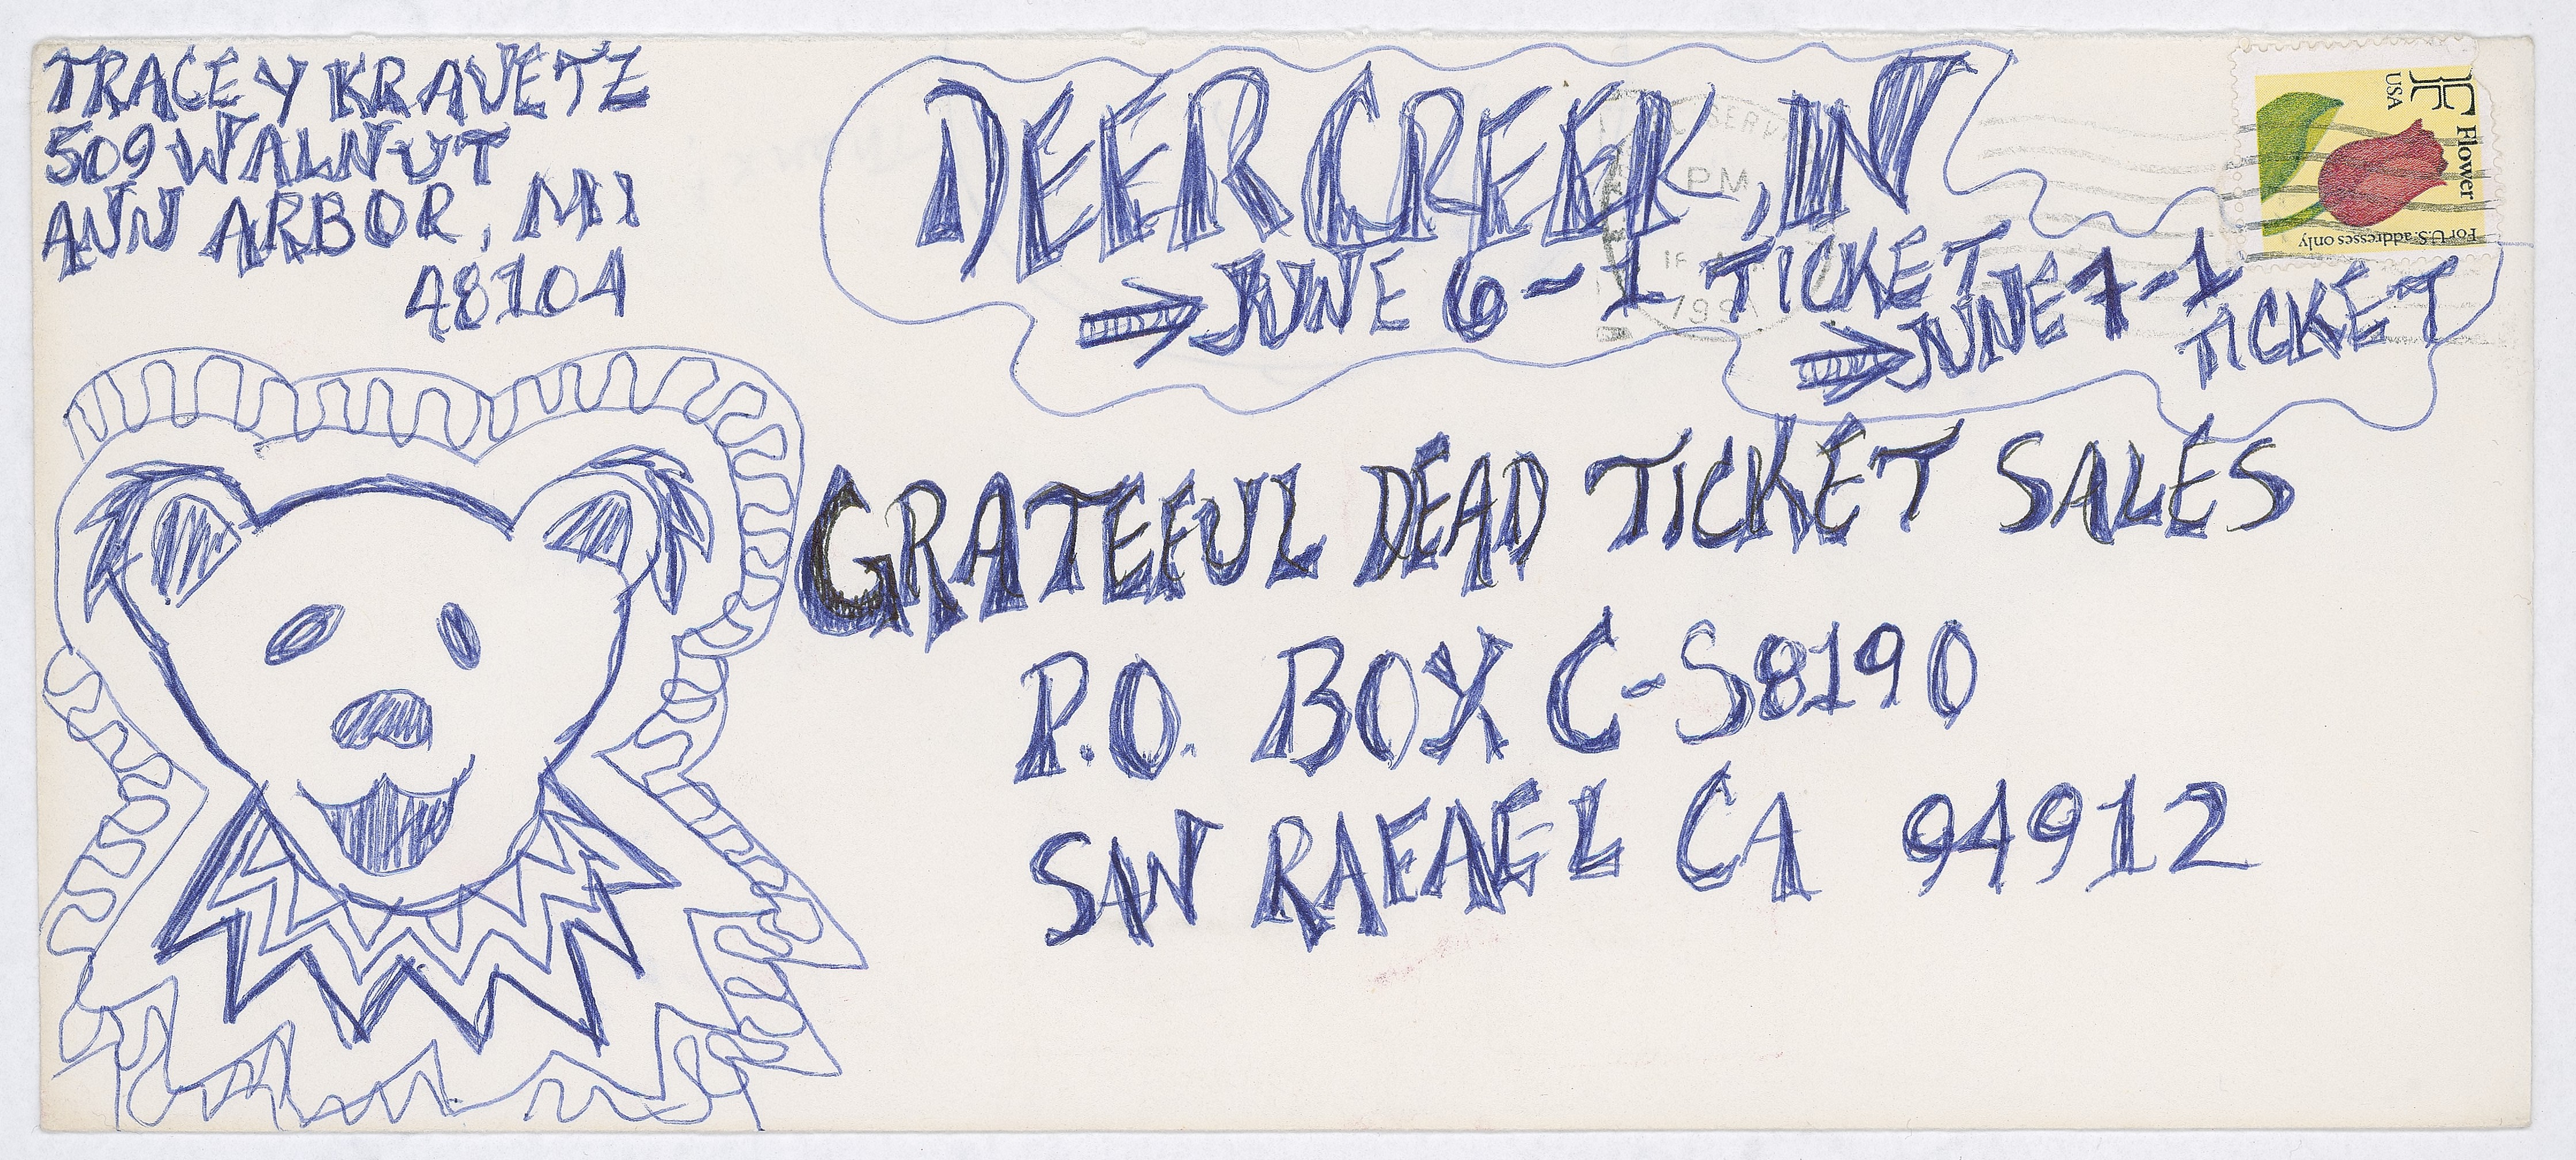 TRACEY KRAVETZ
509 WALNUT
ANN ARBOR, MI
48104
DEER CREEK, IN
⇒ JUNE 6 - 1 TICKET
⇒ JUNE 7 - 1
TICKET
F Flower
USA
For U.S. addresses only
PM
199
GRATEFUL DEAD TICKET SALES
P.O. BOX C-S8190
SAN RAFAEL CA 94912